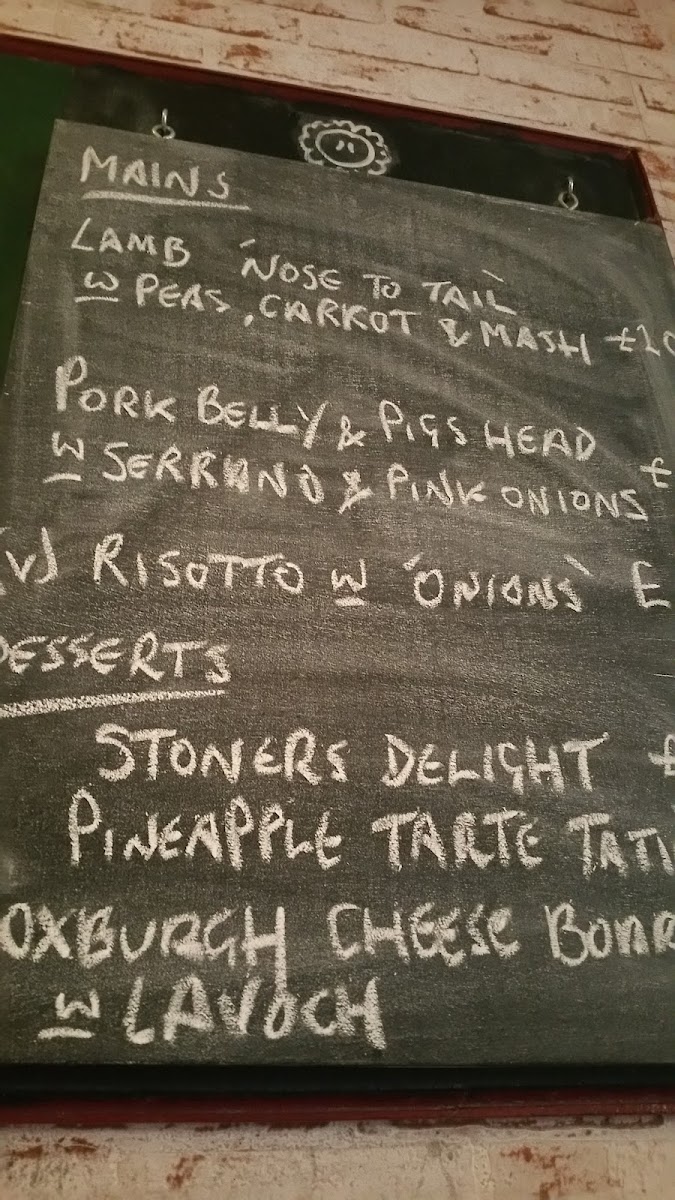 MAINS
LAMB 'NOSE TO TAIL'
W PEAS, CARROT & MASH
PORK BELLY & PIGS HEAD £
W SERRANO & PINK ONIONS
(V) RISOTTO W 'ONIONS' £
DESSERTS
STONERS DELIGHT £
PINEAPPLE TARTE TATI
OXBURGH CHEESE BOAR
W LAVOCH